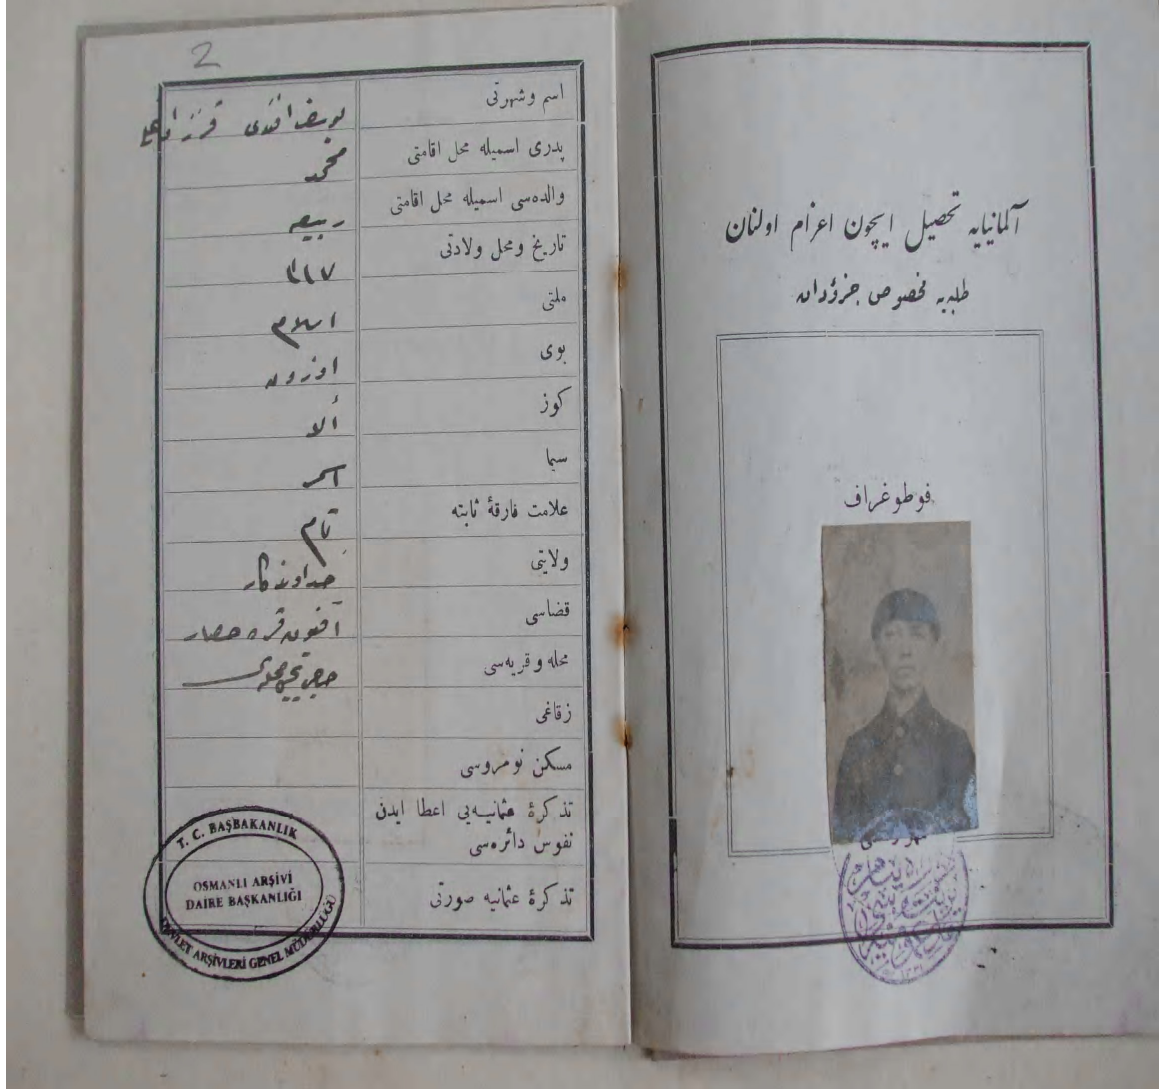 آلمانیایه تحصیل ایچون اعزام اولنان
طلبه‌یه مخصوص جزؤدان
فوطوغراف
2
اسم وشهرتی یوسف افندی
پدری اسمیله محل اقامتی محمد
والده‌سی اسمیله محل اقامتی ربیعه
تاریخ ومحل ولادتی ٣١٧
ملتی اسلام
بوی اوزون
کوز ألا
سیما اسمر
علامت فارقهٔ ثابته تام
ولایتی خداوندکار
قضاسی آفیون قره حصار
محله و قریه‌سی
زقاغی
مسکن نومروسی
تذکرهٔ عثمانیه‌یی اعطا ایدن
نفوس دائره‌سی
تذکرهٔ عثمانیه صورتی
T. C. BAŞBAKANLIK
OSMANLI ARŞİVİ
DAİRE BAŞKANLIĞI
DEVLET ARŞİVLERİ GENEL MÜDÜRLÜĞÜ